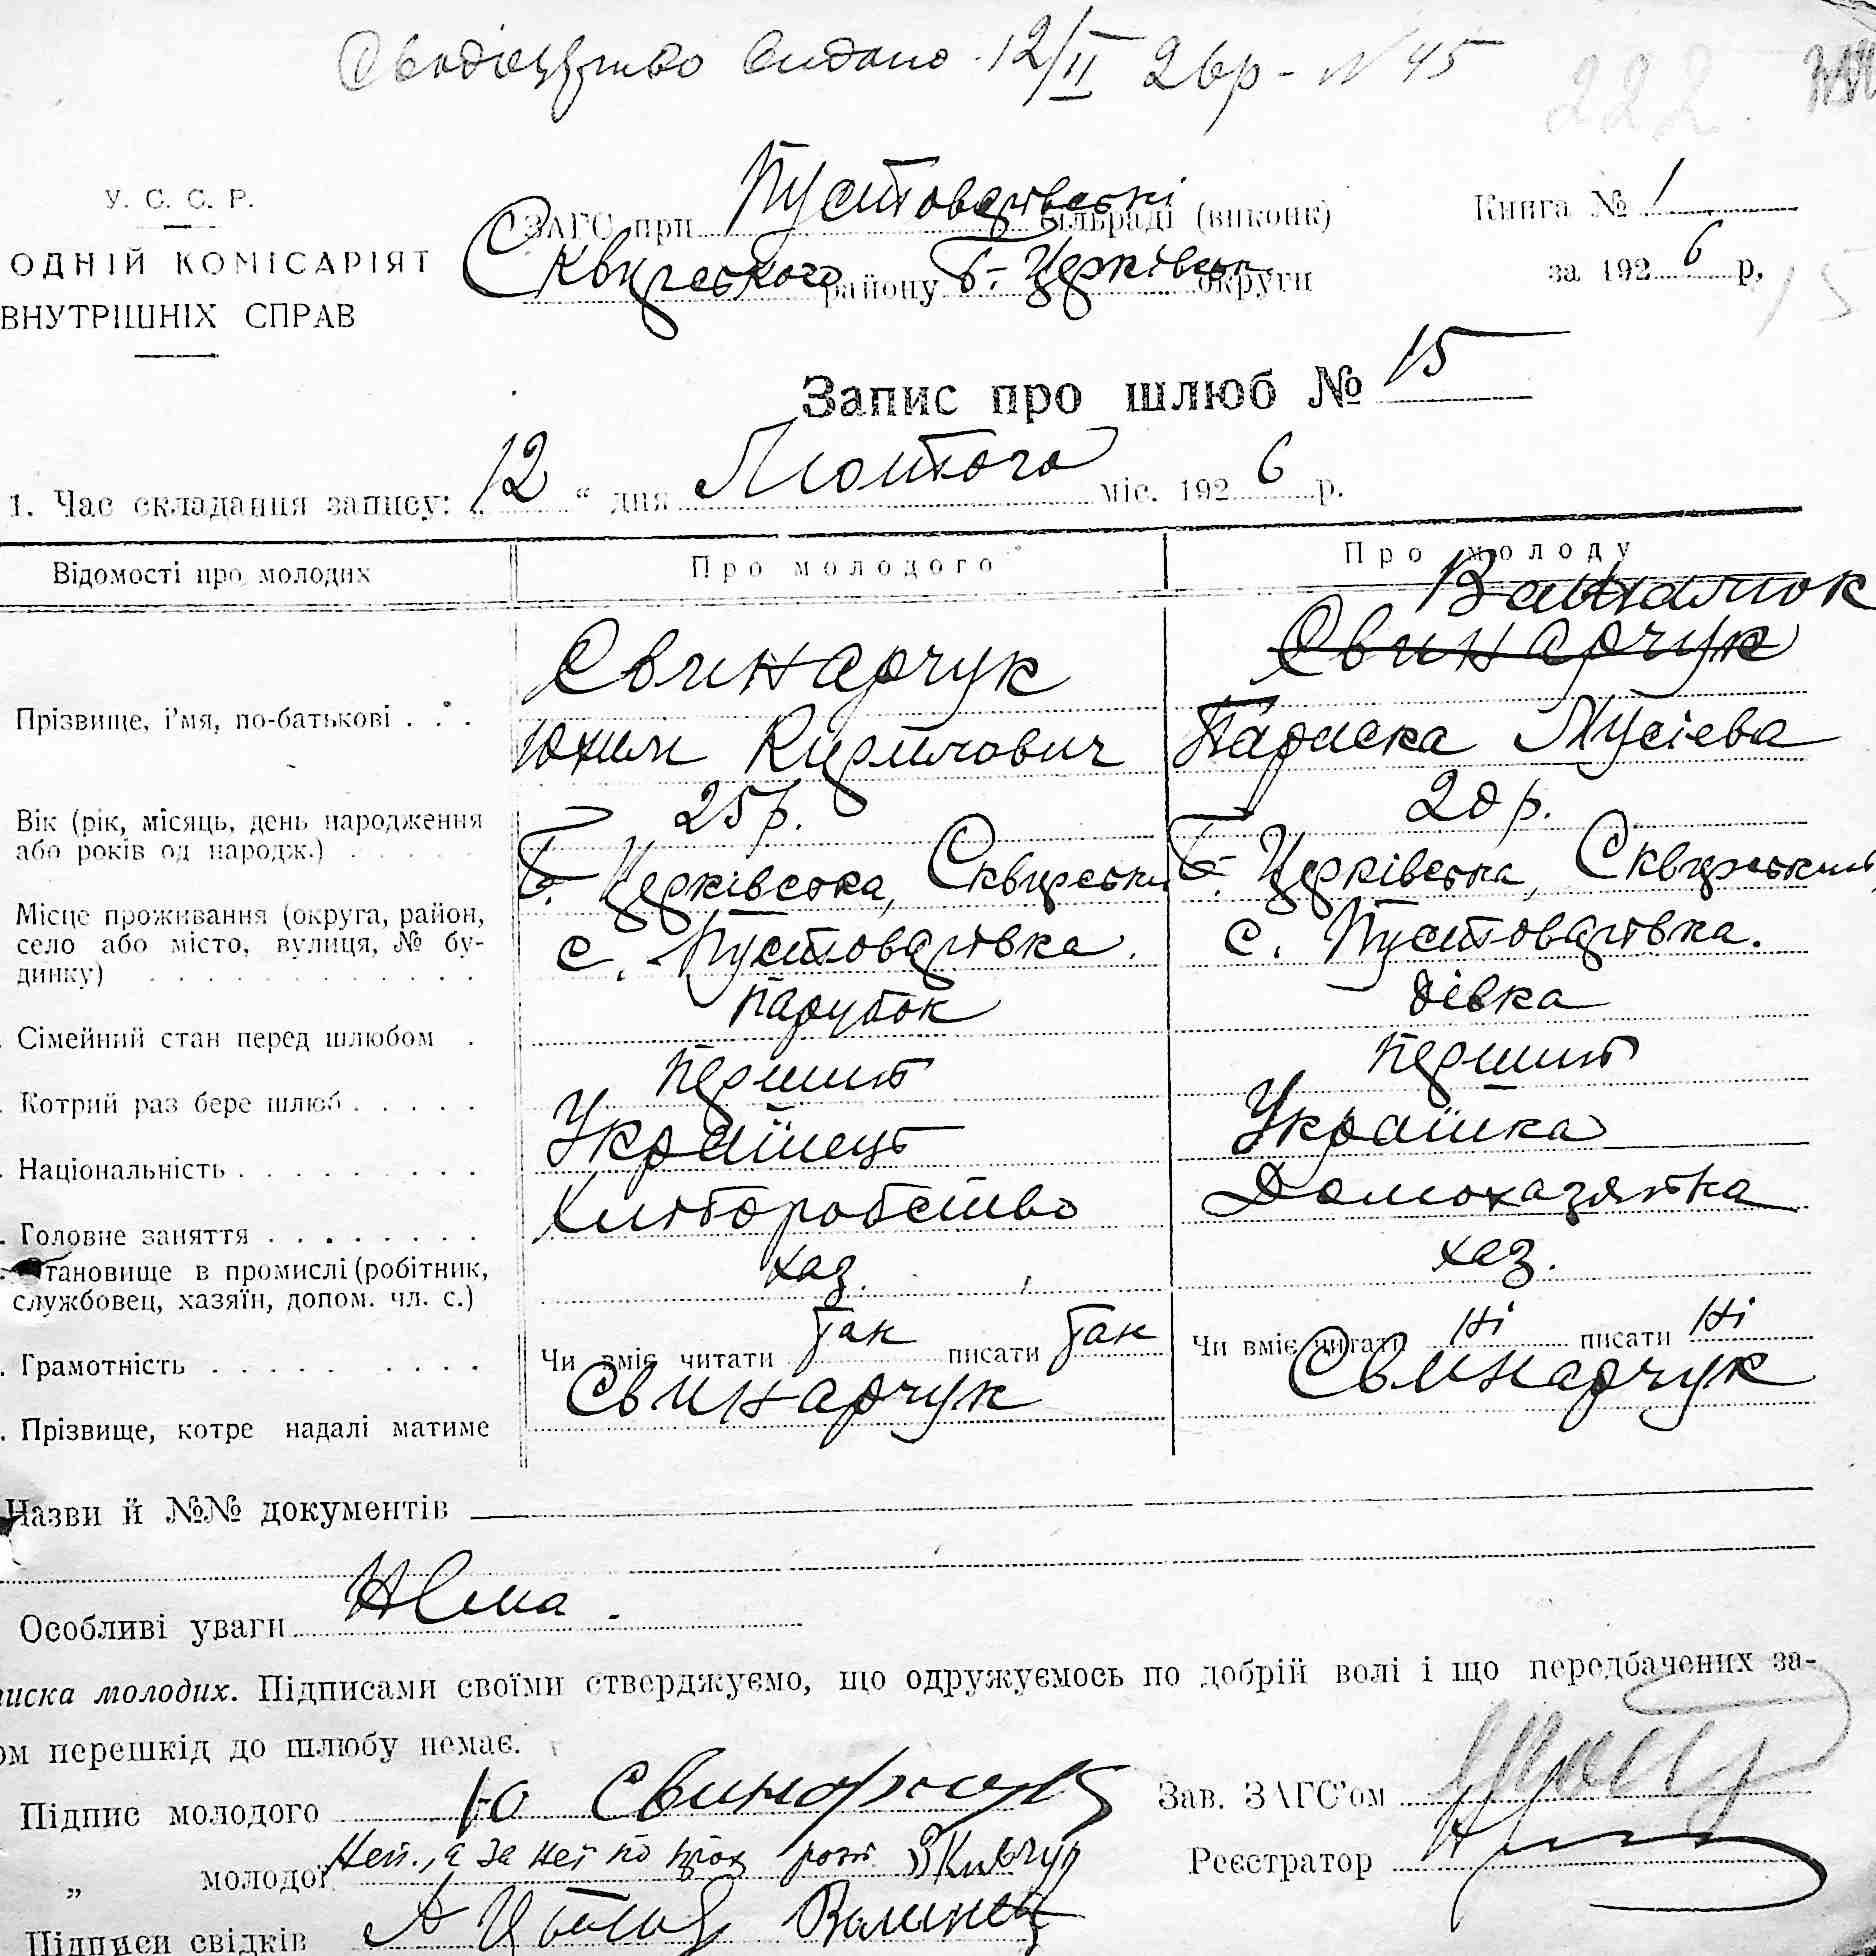 Свидіцтво видано 12/II 26р - N 45
222
У. С. С. Р.
ОДНІЙ КОМІСАРІЯТ
ВНУТРІШНІХ СПРАВ
ЗАГС при Пустоварівські сільраді (виконк)
Сквирського району Б.-Церківськ округи
Книга № 1
за 1926 р,
15
Запис про шлюб № 15
1. Час складання запису: „12“ дня Лютого міс. 1926 р.
Відомості про молодих
Про молодого
Про молоду
Прізвище, і'мя, по-батькові . . .
Свинарчук
Юхим Кирилович
Свинарчук
Париска Мусієва
Вік (рік, місяць, день народження
або років од народж.) . . . . .
25 р.
20 р.
Місце проживання (округа, район,
село або місто, вулиця, № бу-
динку) . . . . . . . . . . . .
Б. Церківська, Сквирськи
с. Пустоварівка.
Б. Церківська, Сквирський
с. Пустоварівка.
. Сімейний стан перед шлюбом .
парубок
дівка
. Котрий раз бере шлюб . . . . .
перший
перший
. Національність . . . . . . . . .
Українець
Українка
. Головне заняття . . . . . . . .
Хліборобство
Домохазяйка
. Становище в промислі (робітник,
службовец, хазяїн, допом. чл. с.)
хаз.
хаз.
. Грамотність . . . . . . . . . .
Чи вміє читати так писати так
Чи вміє читати ні писати ні
. Прізвище, котре надалі матиме
Свинарчук
Свинарчук
Назви й №№ документів
Особливі уваги Нема.
иска молодих. Підписами своїми стверджуємо, що одружуємось по добрій волі і що передбачених за-
ом перешкід до шлюбу немає.
Підпис молодого Ю Свинарчук
„ молодої Неп., а за неї по
Підписи свідків
Зав. ЗАГС'ом
Реєстратор